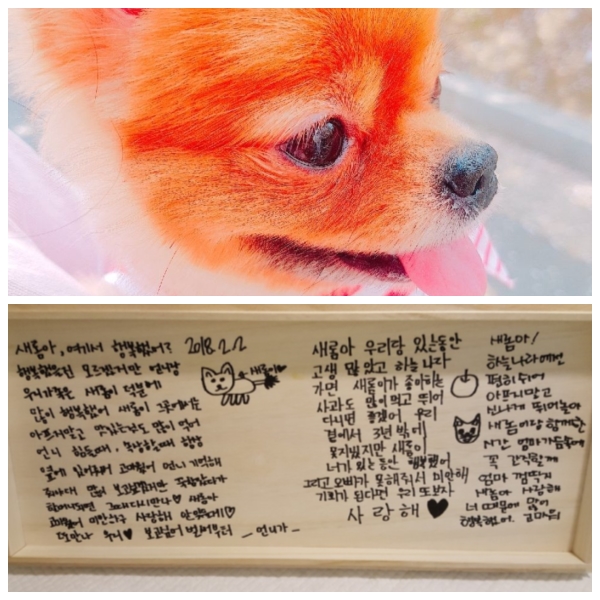 새롬아, 여기서 행복했어? 2018.2.2
행복했는진 모르겠지만 언니랑
우리가족은 새롬이 덕분에
많이 행복했어 새롬이 그곳에서는
아프지말고 맛있는것도 많이 먹어
언니 힘들때, 항상
옆에 있어줘서 고마웠어 언니 기억해
많이 보고싶겠지만
그때 다시만나♡ 새롬아
고마웠어 미안하구 사랑해
또만나 우리♥ 보고싶어 벌써부터 _ 언니가 _
새롬이♥
새롬아 우리랑 있는동안
고생 많았고 하늘나라
가면 새롬이가 좋아하는
사과도 많이먹고 뛰어
다니면 좋겠어 우리
곁에서 3년 밖에
못지냈지만 새롬이
너가 있는동안 행복했어
그리고 오빠가 못해줘서 미안해
기회가 된다면 우리 또보자
사랑해 ♥
새롬아!
하늘나라에선
편히 쉬어
아프지말고
신나게 뛰어놀아
새롬이랑 함께한
시간 엄마가슴속에
꼭 간직할게
엄마 껌딱지
새롬아 사랑해
너 때문에 많이
행복했어. 고마워